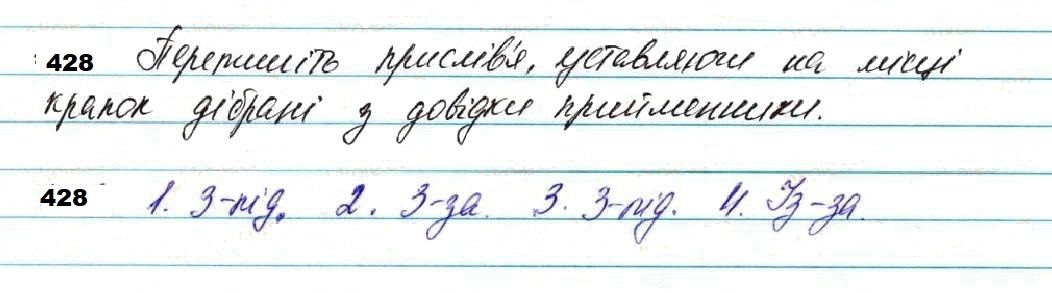 428 Перепишіть прислів'я, уставляючи на місці
крапок дібрані з довідки прийменники.
428 1. З-під. 2. З-за. 3. З-під. 4. Із-за.